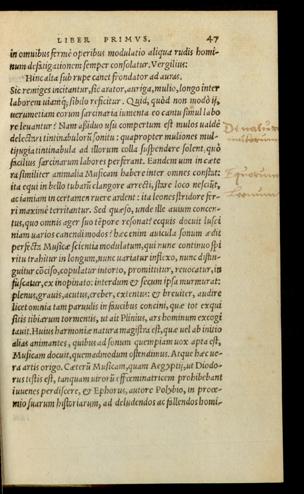 LIBER PRIMVS. 47
in omnibus fermè operibus modulatio aliqua rudis homi-
num defatigationem semper consolatur. Vergilius:
Hinc alta sub rupe canet frondator ad auras.
Sic remiges incitantur, sic arator, auriga, mulio, longo inter
laborem uiamq; sibilo reficitur. Quid, quòd non modò ij,
uerumetiam eorum sarcinaria iumenta eo cantu simul labo
re leuantur? Nam assiduo usu compertum est mulos ualdè
delectari tintinabulorũ sonitu: quapropter muliones mul-
tijugia tintinabula ad illorum colla suspendere solent, quò
facilius sarcinarum labores perferant. Eandem uim in cæte
ra similiter animalia Musicam habere inter omnes constat:
ita equi in bello tubarũ clangore arrecti, stare loco nesciũt,
ac iamiam in certamen ruere ardent: ita leones tridore fer-
ri maximè territantur. Sed quæso, unde illæ auium concen-
tus, quo omnis ager suo tẽpore resonat? ecquis docuit lusci
niam uarios canendi modos? hæc enim auicula sonum ædit
perfecta Musicæ scientia modulatum, qui nunc continuo spi
ritu trahitur in longum, nunc uariatur inflexo, nunc distin-
guitur cõciso, copulatur intorto, promittitur, reuocatur, in
fuscatur, ex inopinato: interdum & secum ipsa murmurat:
plenus, grauis, acutus, creber, extentus: & breuiter, audire
licet omnia tam paruulis in faucibus concini, quæ tot exqui
sitis tibiarum tormentis, ut ait Plinius, ars hominum excogi
tauit. Huius harmoniæ natura magistra est, quæ uel ab initio
alias animantes, quibus ad sonum quempiam uox apta est,
Musicam docuit, quemadmodum ostendimus. Atque hæc ue-
ra artis origo. Cæterũ Musicam, quam Aegyptij, ut Diodo-
rus testis est, tanquam uirorũ effœminatricem prohibebant
iuuenes perdiscere, & Ephorus, autore Polybio, in proœ-
mio suarum historiarum, ad deludendos ac fallendos homi-
De natura
Equorum
Leonum